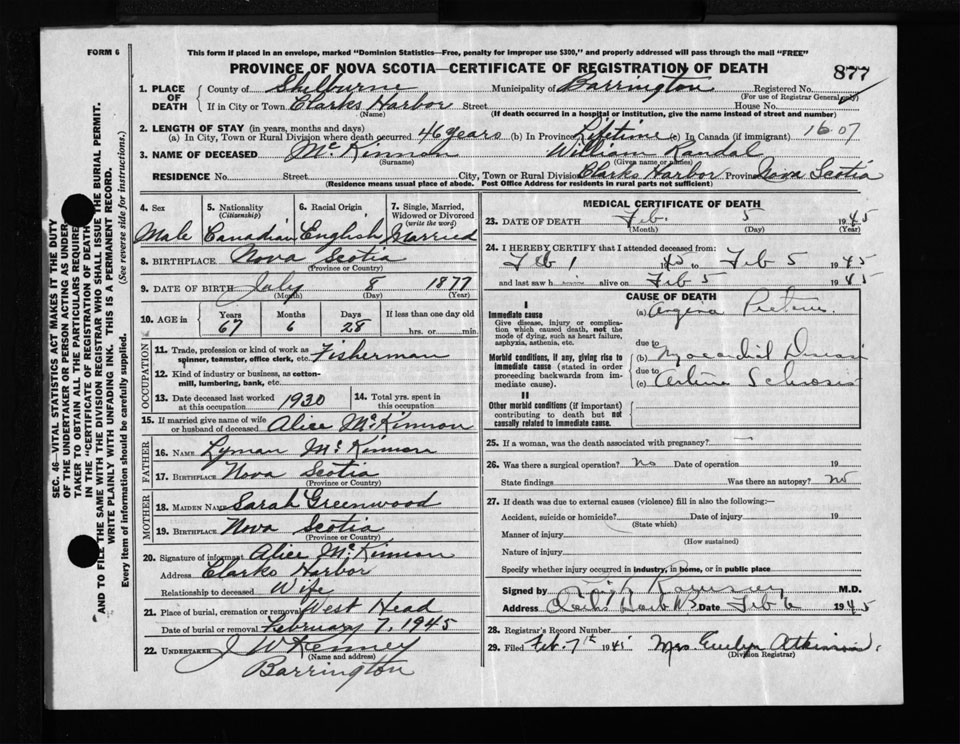 FORM 6
This form if placed in an envelope, marked "Dominion Statistics—Free, penalty for improper use $300," and properly addressed will pass through the mail "FREE"
PROVINCE OF NOVA SCOTIA—CERTIFICATE OF REGISTRATION OF DEATH
877
1. PLACE OF DEATH
County of Shelburne Municipality of Barrington Registered No.
(For use of Registrar General only)
If in City or Town Clarks Harbor Street House No.
(Name) (If death occurred in a hospital or institution, give the name instead of street and number)
2. LENGTH OF STAY (in years, months and days)
(a) In City, Town or Rural Division where death occurred 46 years (b) In Province Lifetime (c) In Canada (if immigrant) 1607
3. NAME OF DECEASED McKinnon William Randal
(Surname) (Given name or names)
RESIDENCE No. Street City, Town or Rural Division Clarks Harbor Province Nova Scotia
(Residence means usual place of abode. Post Office Address for residents in rural parts not sufficient)
4. Sex Male
5. Nationality (Citizenship) Canadian
6. Racial Origin English
7. Single, Married, Widowed or Divorced (write the word) Married
8. BIRTHPLACE Nova Scotia
(Province or Country)
9. DATE OF BIRTH July 8 1877
(Month) (Day) (Year)
10. AGE in Years 67 Months 6 Days 28 If less than one day old hrs. or min.
OCCUPATION
11. Trade, profession or kind of work as spinner, teamster, office clerk, etc. Fisherman
12. Kind of industry or business, as cotton-mill, lumbering, bank, etc.
13. Date deceased last worked at this occupation 1930
14. Total yrs. spent in this occupation
15. If married give name of wife or husband of deceased Alice McKinnon
FATHER
16. NAME Lyman McKinnon
17. BIRTHPLACE Nova Scotia
(Province or Country)
MOTHER
18. MAIDEN NAME Sarah Greenwood
19. BIRTHPLACE Nova Scotia
(Province or Country)
20. Signature of informant Alice McKinnon
Address Clarks Harbor
Relationship to deceased Wife
21. Place of burial, cremation or removal West Head
Date of burial or removal February 7, 1945
22. UNDERTAKER J W Kenney
(Name and address)
Barrington
MEDICAL CERTIFICATE OF DEATH
23. DATE OF DEATH Feb. 5 1945
(Month) (Day) (Year)
24. I HEREBY CERTIFY that I attended deceased from:
Feb 1 1945 to Feb 5 1945
and last saw h alive on Feb 5 1945
CAUSE OF DEATH
I
Immediate cause
Give disease, injury or complication which caused death, not the mode of dying, such as heart failure, asphyxia, asthenia, etc.
(a) Angina
due to
Morbid conditions, if any, giving rise to immediate cause (stated in order proceeding backwards from immediate cause).
(b)
due to
(c)
II
Other morbid conditions (if important) contributing to death but not causally related to immediate cause.
25. If a woman, was the death associated with pregnancy? —
26. Was there a surgical operation? No Date of operation 19
State findings Was there an autopsy? no
27. If death was due to external causes (violence) fill in also the following:—
Accident, suicide or homicide? Date of injury 19
(State which)
Manner of injury
(How sustained)
Nature of injury
Specify whether injury occurred in industry, in home, or in public place
Signed by M.D.
Address Date Feb 6 1945
28. Registrar's Record Number
29. Filed Feb. 7th 1945 Mrs. Evelyn Atkinson
(Division Registrar)
SEC. 46—VITAL STATISTICS ACT MAKES IT THE DUTY
OF THE UNDERTAKER OR PERSON ACTING AS UNDER
TAKER TO OBTAIN ALL THE PARTICULARS REQUIRE
IN THE "CERTIFICATE OF REGISTRATION OF DEATH"
AND TO FILE THE SAME WITH THE DIVISION REGISTRAR WHO SHALL ISSUE THE BURIAL PERMIT.
WRITE PLAINLY WITH UNFADING INK. THIS IS A PERMANENT RECORD.
Every item of information should be carefully supplied. (See reverse side for instructions.)